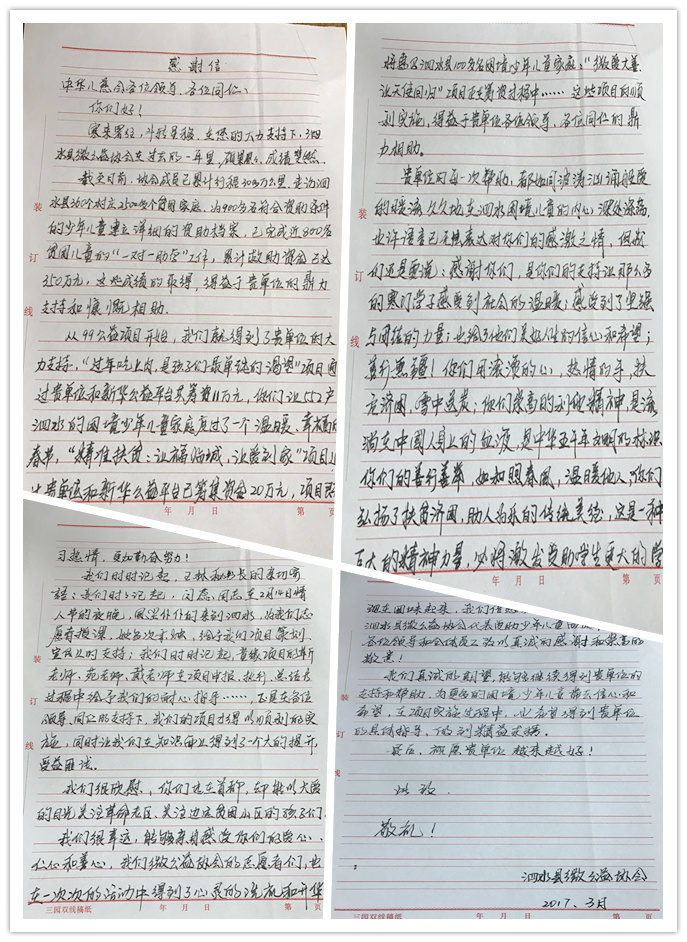 感谢信
中华儿慈会各位领导、各位同仁：
你们好！
寒来暑往，斗转星移，在您的大力支持下，泗
水县微公益协会在过去的一年里，硕果累累，成绩斐然。
截至目前，协会成员已累计行程30多万公里，走访泗
水县360个村庄2500多个贫困家庭，为900名符合资助条件
的少年儿童建立详细的资助档案，已完成近800名
贫困儿童的“一对一助学”工作，累计救助资金已达
350万元，这些成绩的取得，得益于贵单位的鼎力
支持和慷慨相助。
从99公益项目开始，我们就得到了贵单位的大
力支持，“过年吃上肉，是孩子们最单纯的渴望”项目通
过贵单位和新华公益平台共筹资11万元，你们让552户
泗水的困境少年儿童家庭度过了一个温暖、幸福的
春节，“精准扶贫：让福临城，让爱到家”项目
贵单位和新华公益平台已筹集资金20万元，项目
年 月 日 第 页
装
订
线
将惠及泗水县100多名困境少年儿童家庭；“微爱大善
让天使回归”项目正在筹资过程中……这些项目的顺
利实施，得益于贵单位各位领导、各位同仁的鼎
力相助。
贵单位的每一次帮助，都如同波涛汹涌般爱
的暖流久久地在泗水困境儿童的内心深处激荡，
也许语言已无法表达对你们的感激之情，但我
们还是要说：感谢你们，是你们的支持让那么多
的寒门学子感受到社会的温暖；感受到了坚强
与团结的力量；也给了他们美好人生的信心和希望；
善行无疆！你们用滚烫的心，热情的手，扶
危济困，雪中送炭；你们崇高的利他精神，是流
淌在中国人身上的血液，是中华五千年文明的标识
你们的善行善举，如和煦春风，温暖他人，你们
弘扬了扶贫济困，助人为乐的传统美德，这是一种
巨大的精神力量，必将激发受助学生更大的学
年 月 日 第 页
装
订
线
习热情，更加勤奋努力！
我们时时记起，王林和秘书长的亲切寄
语；我们时时记起，闫磊同志在2月14日情
人节的夜晚，风尘仆仆的来到泗水，为我们志
愿者授课，她多次来泗，给予我们项目策划、
老师、苑老师、戴老师在项目申报、执行、总结各
过程中给予我们的耐心指导……，正是在各位
领导、同仁的支持下，我们的项目才得以顺利的实
施，同时让我们在知识面上得到了一个大的提升，
受益匪浅。
我们很欣慰，你们也在首都，却能以大爱
的目光关注革命老区、关注边远贫困山区的孩子们。
我们很幸运，能够亲自感受你们的爱心、
仁心和善心，我们微公益协会的志愿者们，也
在一次次的活动中得到了心灵的洗礼和升华
三园双线稿纸 年 月 日 第 页
装
订
线
泗水县微公益协会代表受助少年儿童
各位领导和全体员工致以真诚的感谢和崇高的
敬意！
我们真诚的期望，能够继续得到贵单位的
支持和帮助，为更多的困境少年儿童带去信心和
希望，在项目实施过程中，也希望得到贵单位
的具体指导，
最后，祝愿贵单位越来越好！
此致
敬礼！
泗水县微公益协会
2017.3月
三园双线稿纸 年 月 日 第 页
装
订